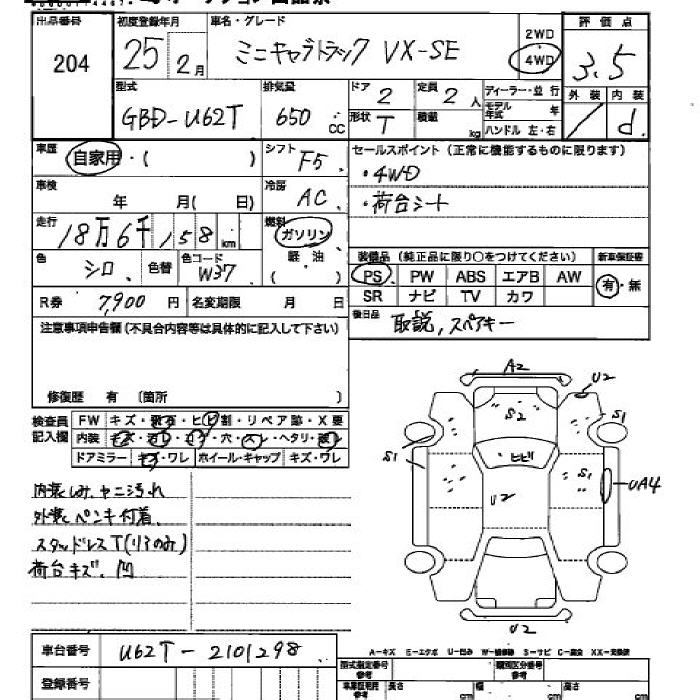 出品番号 初度登録年月 車名・グレード 2WD 評価点
204 25 2月 ミニキャブトラック VX-SE 4WD 3.5
型式 排気量 ドア 定員 ディーラー・並行 外装 内装
GBD-U62T 650 CC 2 2人 モデル年式 年 / d
形状 T 積載 kg ハンドル 左・右
車歴 自家用・( ) シフト F5 セールスポイント (正常に機能するものに限ります)
車検 年 月( 日) 冷房 AC ・4WD
・荷台シート
走行 18万6千158km 燃料 ガソリン
軽・油
( )
色 シロ 色替 色コード W37
装備品 (純正品に限り○をつけてください) 新車保証書
PS PW ABS エアB AW 有・無
SR ナビ TV カワ
R券 7,900円 名変期限 月 日
後日品 取説,スペアキー
注意事項申告欄(不具合内容等は具体的に記入して下さい)
修復歴 有 〔箇所 〕
検査員記入欄 FW キズ・飛石・ヒビ割・リペア跡・X要
内装 キズ・汚れ・コゲ・穴・スレ・ヘタリ・破
ドアミラー キズ・ワレ ホイール・キャップ キズ・ワレ
内装しみ,ヤニ汚れ
外装ペンキ付着.
スタッドレスT(リアのみ)
荷台キズ.凹
A2
U2
S2
S1
S1
ヒビ
S1
UA4
U2
U2
A-キズ E-エクボ U-凹み W-補修跡 S-サビ C-腐食 XX-交換済
車台番号 U62T-2101298
登録番号
型式指定番号 参考 類別区分番号 参考
車庫証明用 参考 長さ cm 幅 cm 高さ cm